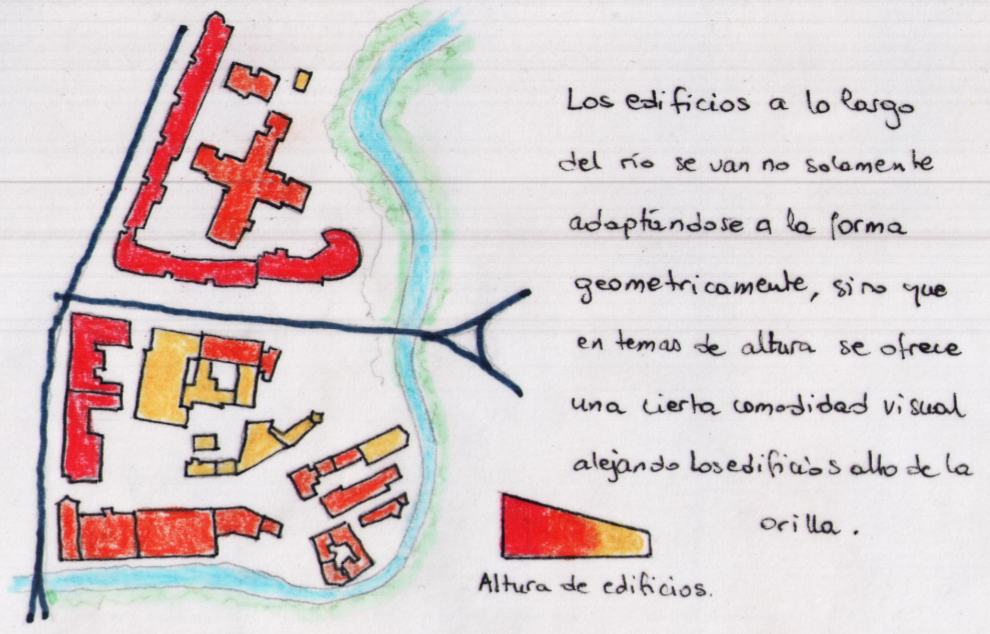 Los edificios a lo largo
del río se van no solamente
adaptándose a la forma
geometricamente, sino que
en temas de altura se ofrece
una cierta comodidad visual
alejando los edificios alto de la
orilla.
Altura de edificios.